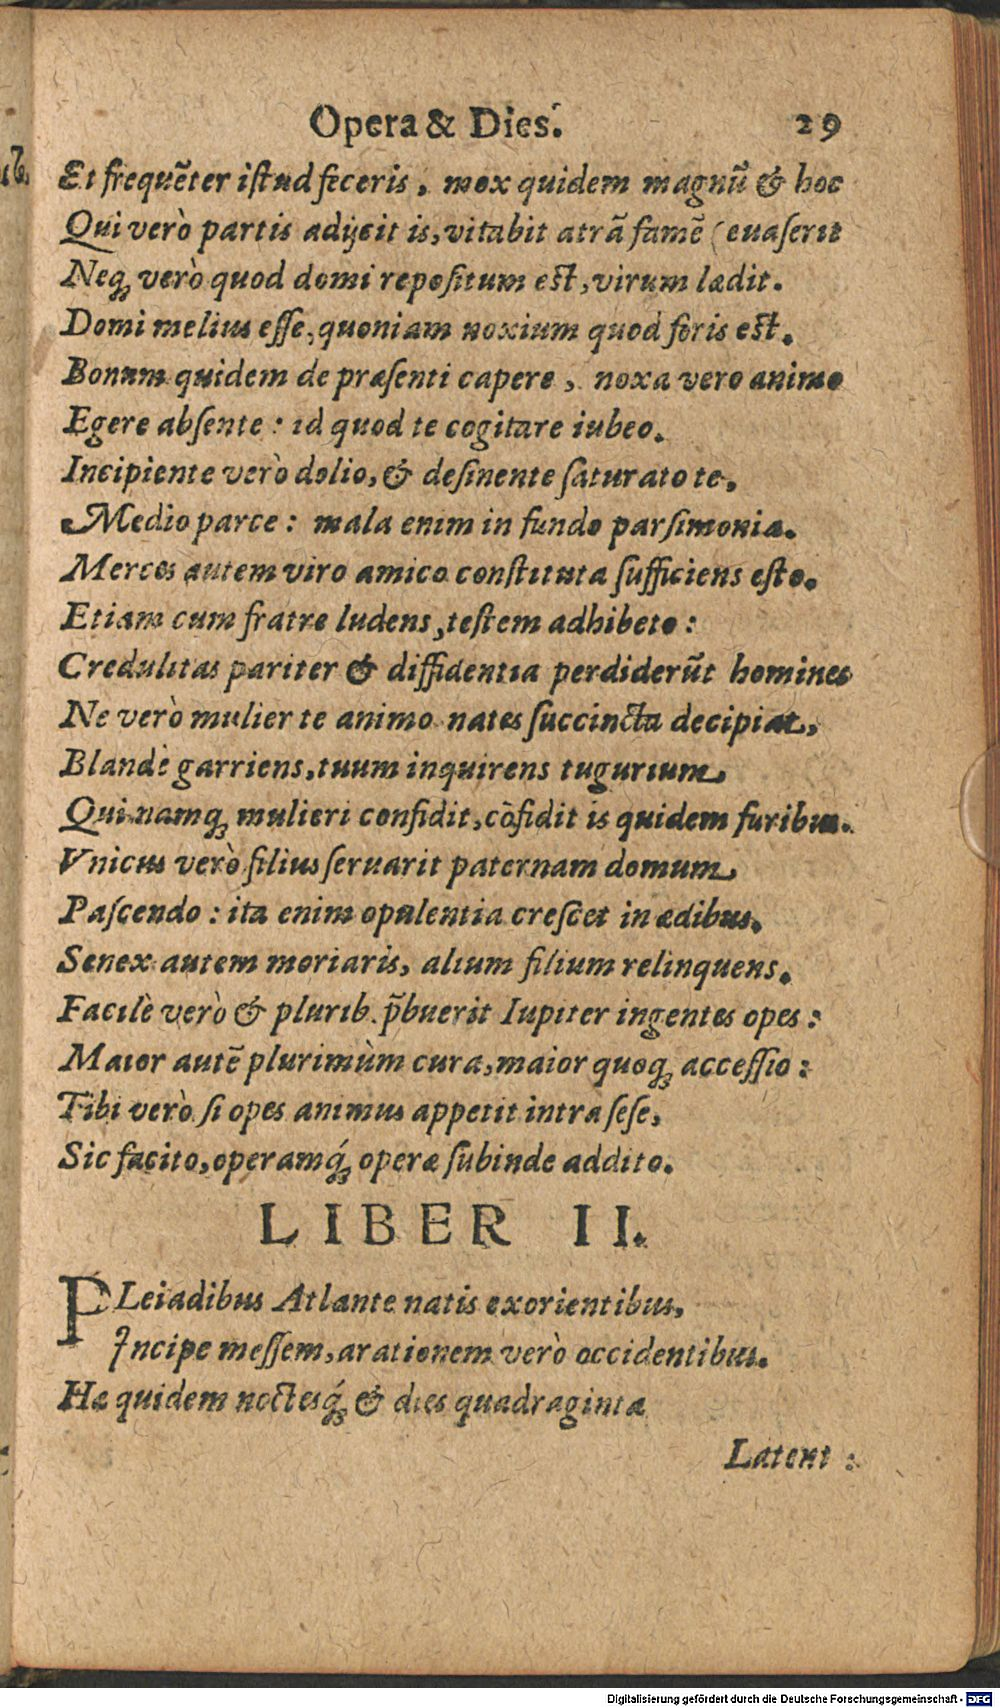 Opera & Dies. 29
Et frequẽter iſtud feceris, mox quidem magnũ & hoc
Qui verò partis adijcit is, vitabit atrã famẽ (euaſerit
Neq; verò quod domi repoſitum eſt, virum lædit.
Domi melius eſſe, quoniam noxium quod foris eſt.
Bonum quidem de præſenti capere, noxa vero animo
Egere abſente: id quod te cogitare iubeo.
Incipiente verò dolio, & deſinente ſaturato te,
Medio parce: mala enim in fundo parſimonia.
Merces autem viro amico conſtituta ſufficiens eſto.
Etiam cum fratre ludens, teſtem adhibeto:
Credulitas pariter & diffidentia perdiderũt homines
Ne verò mulier te animo nates ſuccincta decipiat,
Blandè garriens, tuum inquirens tugurium,
Qui namq; mulieri confidit, cõfidit is quidem furibus.
Vnicus verò filius ſeruarit paternam domum,
Paſcendo: ita enim opulentia creſcet in ædibus.
Senex autem moriaris, alium filium relinquens.
Facilè verò & plurib. p̃buerit Iupiter ingentes opes:
Maior autẽ plurimùm cura, maior quoq; acceſſio:
Tibi verò ſi opes animus appetit intra ſeſe,
Sic facito, operamq́; operæ ſubinde addito.
LIBER II.
PLeiadibus Atlante natis exorientibus,
Incipe meſſem, arationem verò occidentibus.
Hæ quidem noctesq́; & dies quadraginta
Latent:
Digitalisierung gefördert durch die Deutsche Forschungsgemeinschaft - DFG